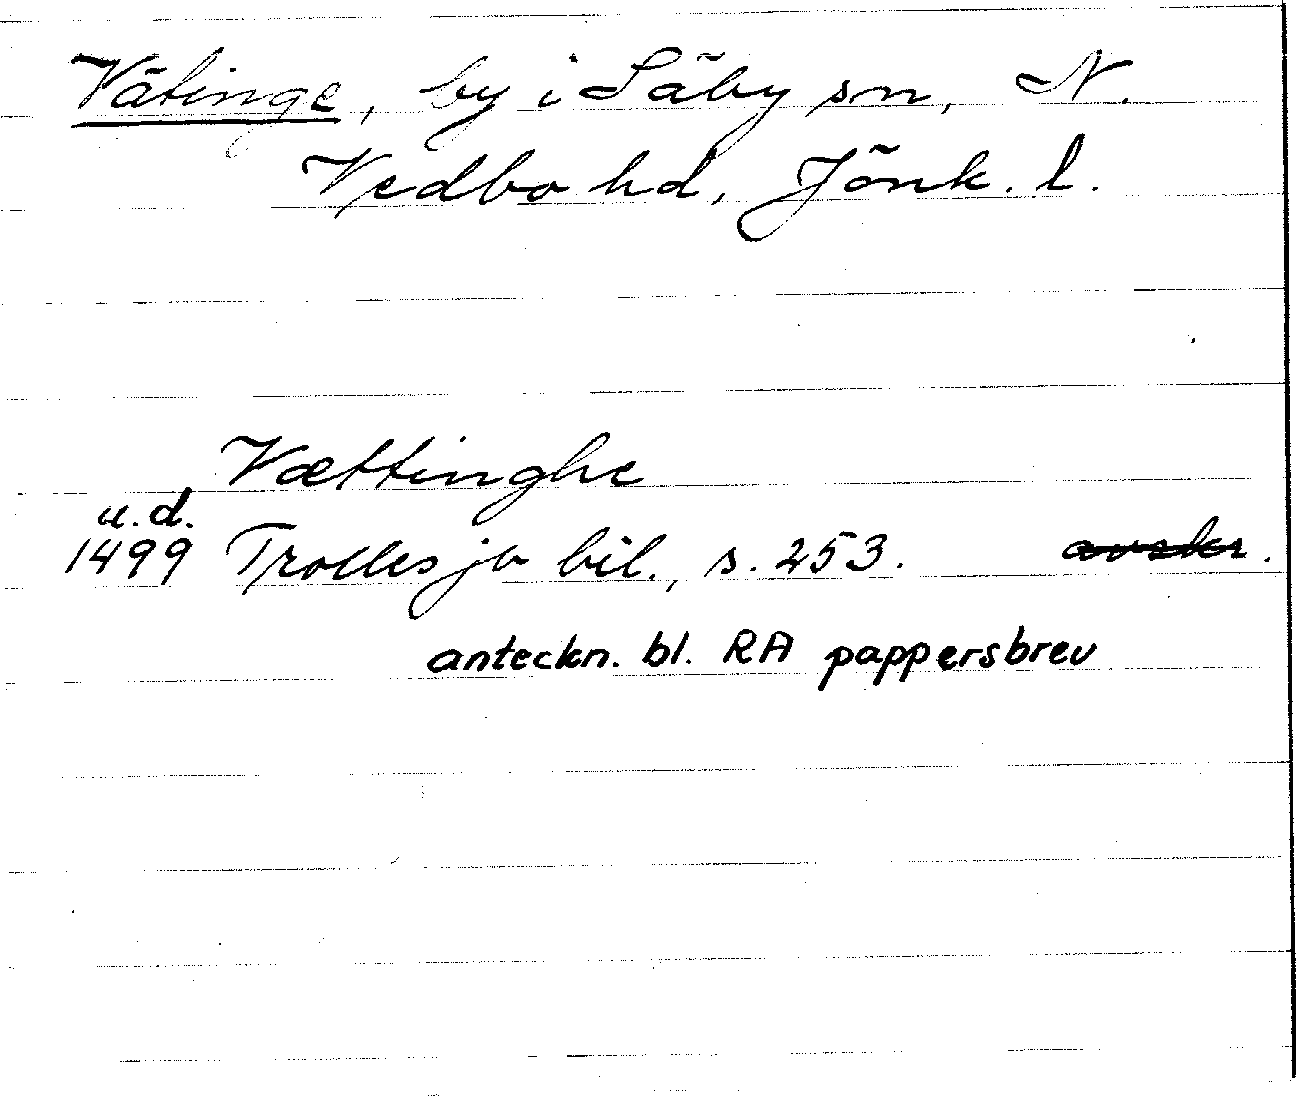 Vätinge, by i Säby sn, N.
Vedbo hd, Jönk. l.
Vættinghe
u.d.
1499 Trolles jb bil., s. 253. avskr.
anteckn. bl. RA pappersbrev